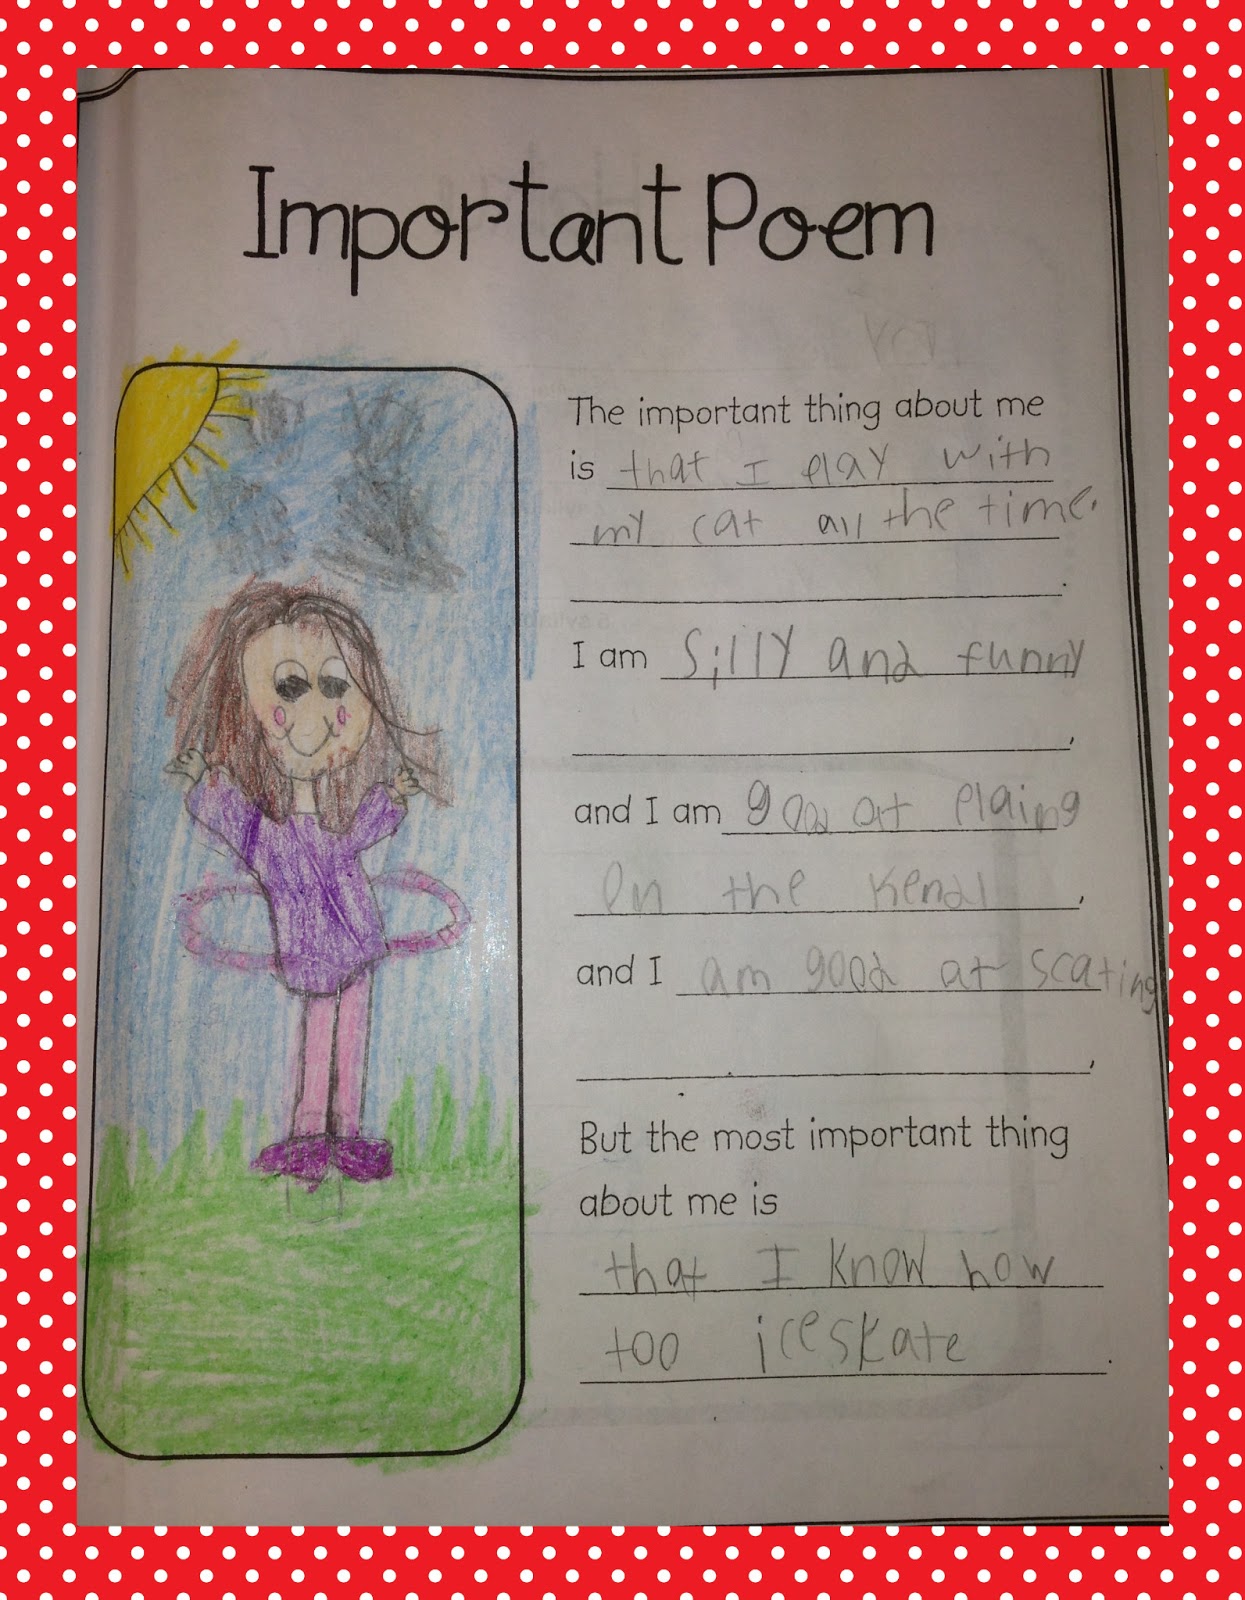 Important Poem
The important thing about me
is that I play with
my cat all the time.
.
I am silly and funny
,
and I am good at plaing
on the Kendl,
and I am good at scating
,
But the most important thing
about me is
that I know how
too iceskate.